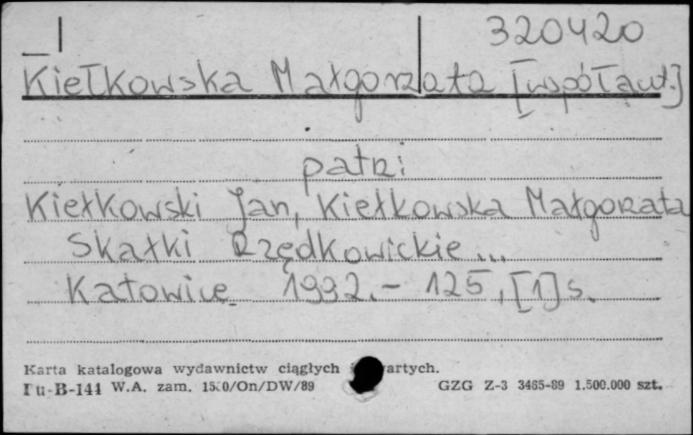 320420
Kiełkowska Małgorzata [współaut.]
patrz:
Kiełkowski Jan, Kiełkowska Małgorzata
Skałki Rzędkowickie...
Katowice 1992.- 125, [1] s.
Karta katalogowa wydawnictw ciągłych
Pu-B-141 W.A. zam. /On/DW/89 GZG Z-3 3465-89 1.500.000 szt.